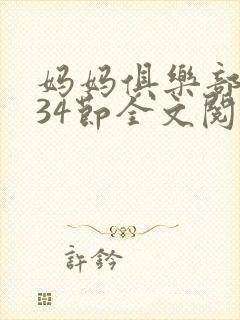 妈妈俱樂部
34節全文閱
許鈐